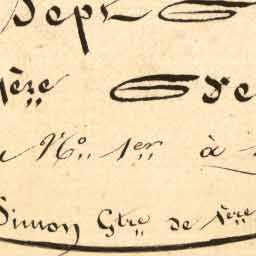 Dept G
1ère Gde
No 1er à
Simon Gtre de 1ère